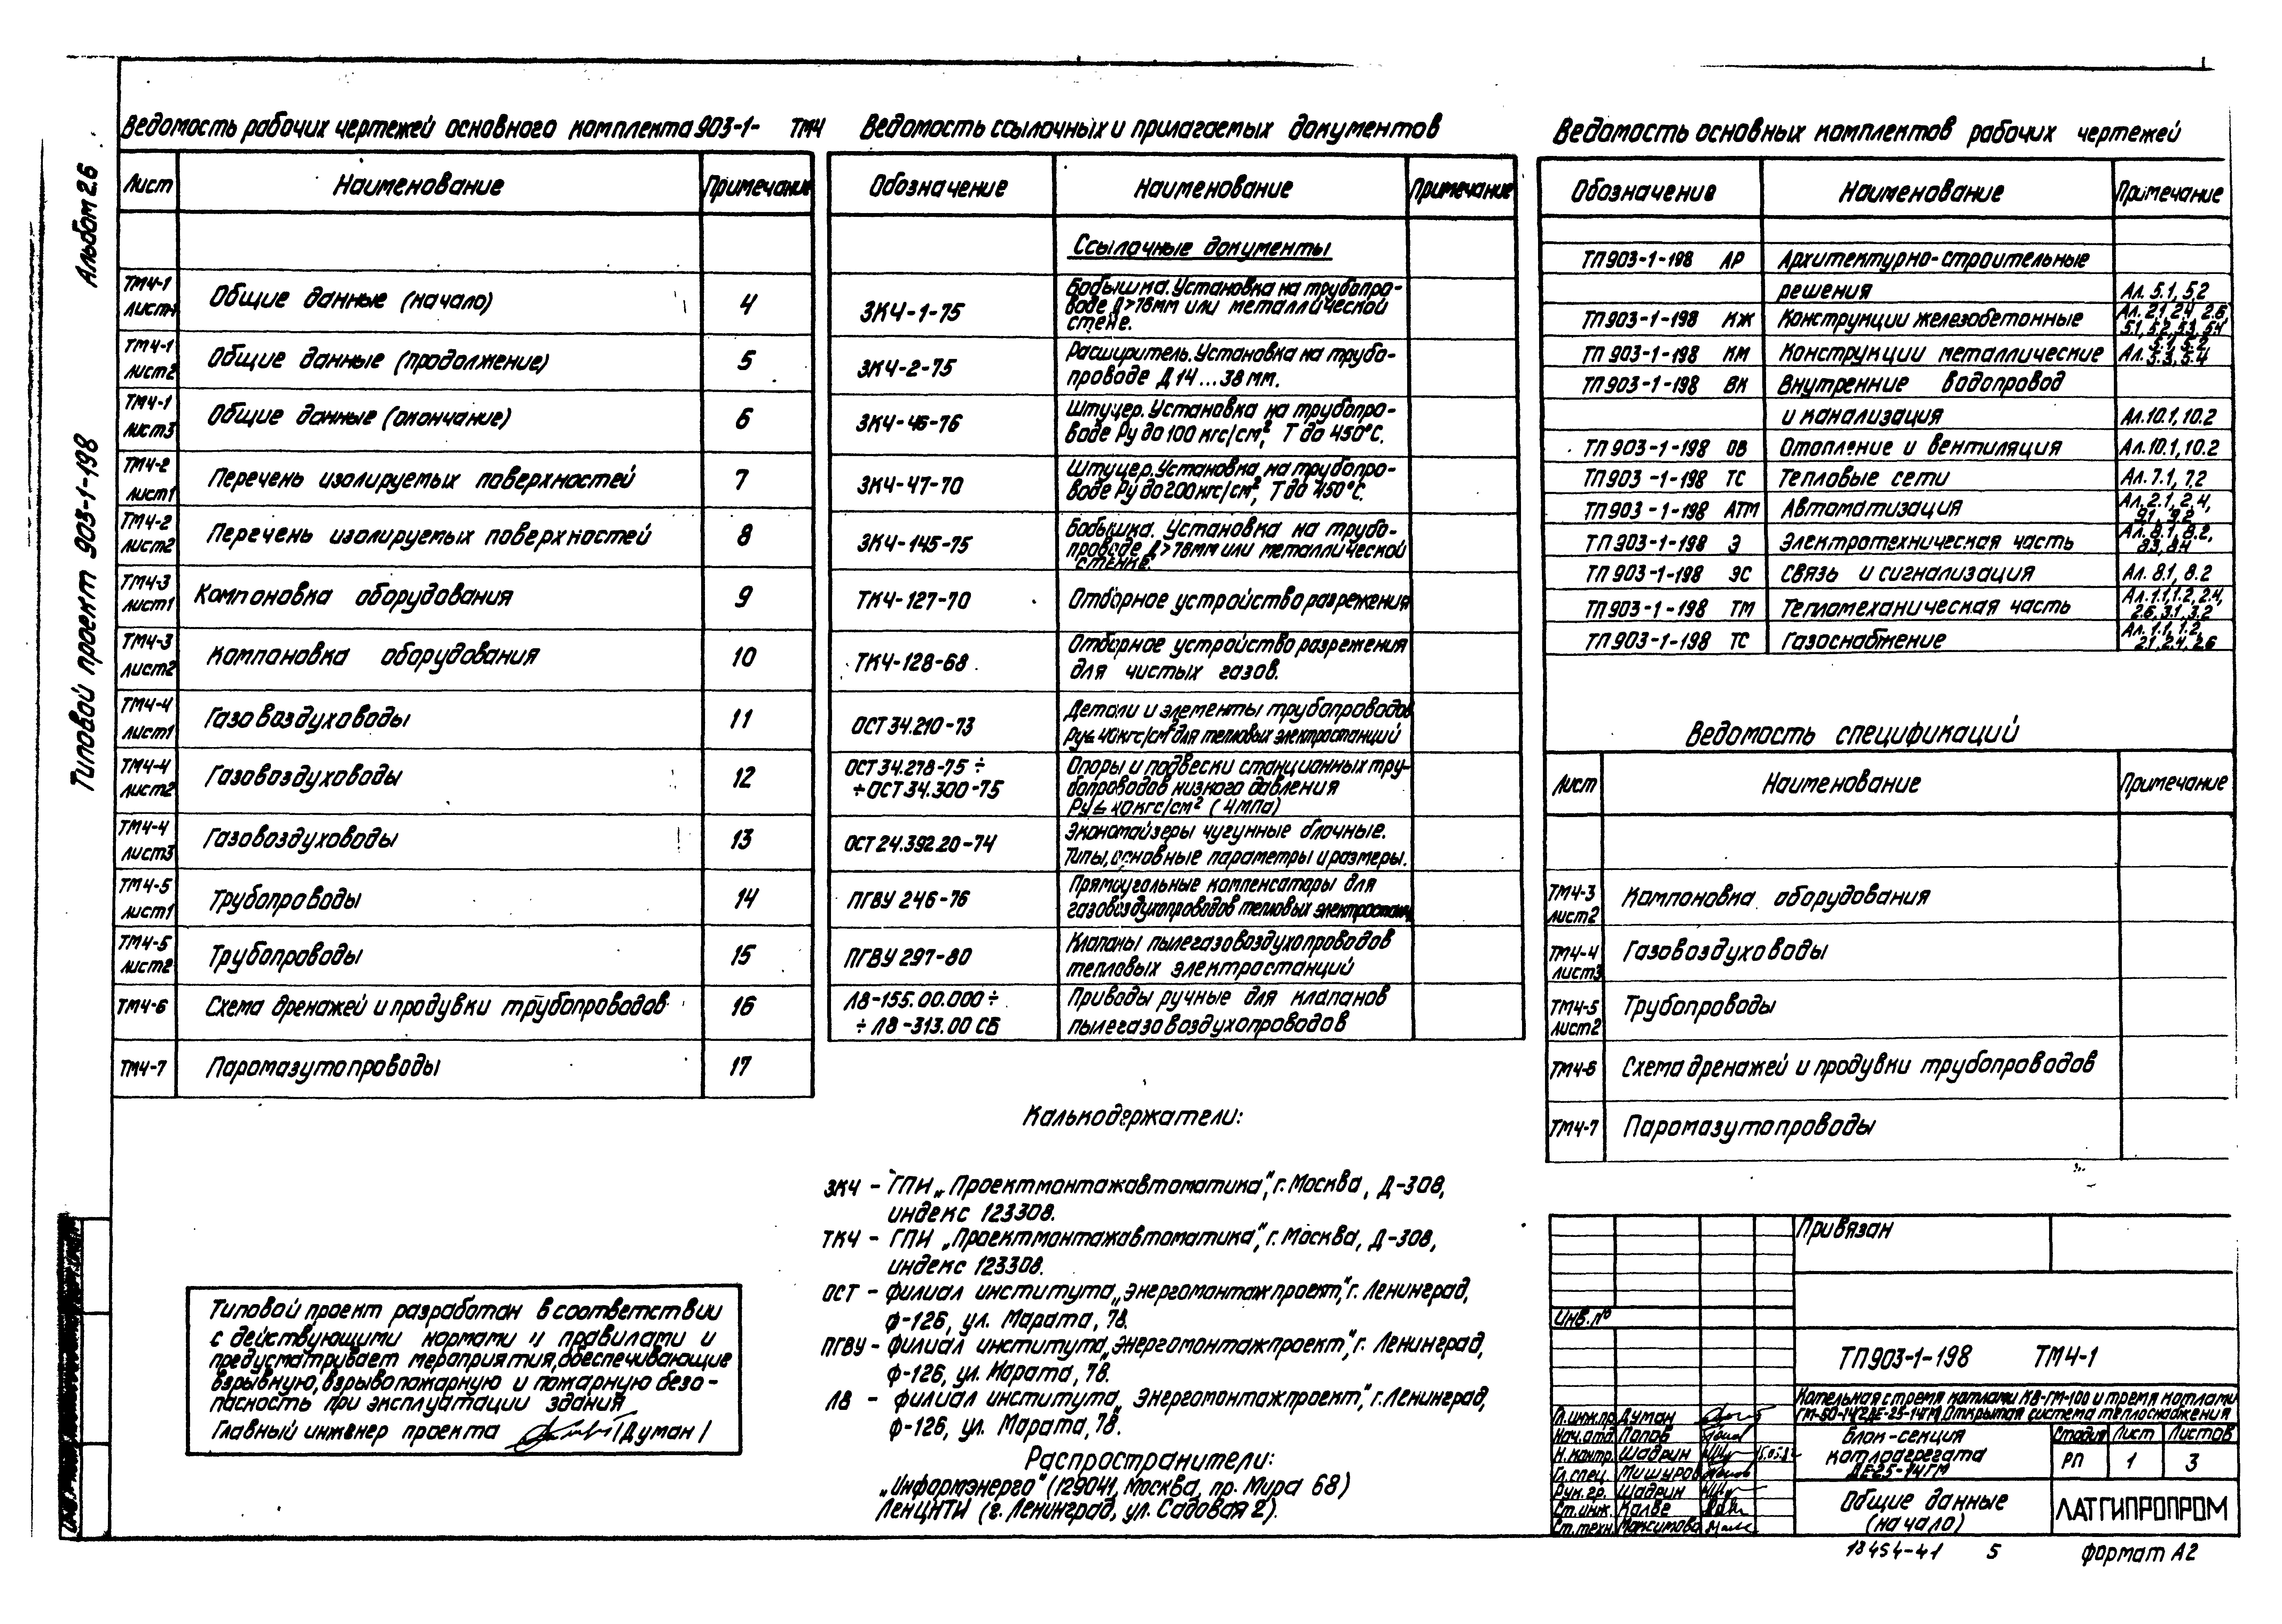 Альбом 2.6
Типовой проект 903-1-198
Ведомость рабочих чертежей основного комплекта 903-1- ТМ4
Лист Наименование Примечание
ТМ4-1
лист1 Общие данные (начало) 4
ТМ4-1
лист2 Общие данные (продолжение) 5
ТМ4-1
лист3 Общие данные (окончание) 6
ТМ4-2
лист1 Перечень изолируемых поверхностей 7
ТМ4-2
лист2 Перечень изолируемых поверхностей 8
ТМ4-3
лист1 Компоновка оборудования 9
ТМ4-3
лист2 Компоновка оборудования 10
ТМ4-4
лист1 Газовоздуховоды 11
ТМ4-4
лист2 Газовоздуховоды 12
ТМ4-4
лист3 Газовоздуховоды 13
ТМ4-5
лист1 Трубопроводы 14
ТМ4-5
лист2 Трубопроводы 15
ТМ4-6 Схема дренажей и продувки трубопроводов 16
ТМ4-7 Паромазутопроводы 17
Типовой проект разработан в соответствии
с действующими нормами и правилами и
предусматривает мероприятия, обеспечивающие
взрывную, взрывопожарную и пожарную безо-
пасность при эксплуатации здания
Главный инженер проекта /Думан/
Ведомость ссылочных и прилагаемых документов
Обозначение Наименование Примечание
Ссылочные документы
ЗК4-1-75 Бобышка. Установка на трубопро-
воде Д>76мм или металлической
стене.
ЗК4-2-75 Расширитель. Установка на трубо-
проводе Д 14...38 мм.
ЗК4-46-76 Штуцер. Установка на трубопро-
воде Ру до 100 кгс/см², Т до 450°С.
ЗК4-47-70 Штуцер. Установка на трубопро-
воде Ру до 200 кгс/см², Т до 450°С.
ЗК4-145-75 Бобышка. Установка на трубо-
проводе Д>76мм или металлической
стенке.
ТК4-127-70 Отборное устройство разрежения
ТК4-128-68 Отборное устройство разрежения
для чистых газов.
ОСТ 34.210-73 Детали и элементы трубопроводов
Ру≤40кгс/см² для тепловых электростанций
ОСТ 34.278-75 ÷
÷ОСТ 34.300-75 Опоры и подвески станционных тру-
бопроводов низкого давления
Ру≤40кгс/см² (4МПа)
ОСТ 24.392.20-74 Экономайзеры чугунные блочные.
Типы, основные параметры и размеры.
ПГВУ 246-76 Прямоугольные компенсаторы для
газовоздухопроводов тепловых
ПГВУ 297-80 Клапаны пылегазовоздухопроводов
тепловых электростанций
Л8-155.00.000 ÷
÷ Л8-313.00 СБ Приводы ручные для клапанов
пылегазовоздухопроводов
Калькодержатели:
ЗК4 - ГПИ „Проектмонтажавтоматика", г. Москва, Д-308,
индекс 123308.
ТК4 - ГПИ „Проектмонтажавтоматика", г. Москва, Д-308,
индекс 123308.
ОСТ - филиал института „Энергомонтажпроект", г. Ленинград,
Ф-126, ул. Марата, 78.
ПГВУ - филиал института „Энергомонтажпроект", г. Ленинград,
Ф-126, ул. Марата, 78.
Л8 - филиал института „Энергомонтажпроект", г. Ленинград,
Ф-126, ул. Марата, 78.
Распространители:
„Информэнерго" (129041, Москва, пр. Мира 68)
ЛЕНЦНТИ (г. Ленинград, ул. Садовая 2).
Ведомость основных комплектов рабочих чертежей
Обозначение Наименование Примечание
ТП 903-1-198 АР Архитектурно-строительные
решения Ал. 5.1, 5.2
ТП 903-1-198 КЖ Конструкции железобетонные Ал. 2.1, 2.4, 2.6,
5.1, 5.2, 5.3, 5.4
ТП 903-1-198 КМ Конструкции металлические Ал. 5.1, 5.2,
5.3, 5.4
ТП 903-1-198 ВК Внутренние водопровод
и канализация Ал. 10.1, 10.2
ТП 903-1-198 ОВ Отопление и вентиляция Ал. 10.1, 10.2
ТП 903-1-198 ТС Тепловые сети Ал. 7.1, 7.2
ТП 903-1-198 АТМ Автоматизация Ал. 2.1, 2.4,
9.1, 9.2
ТП 903-1-198 Э Электротехническая часть Ал. 8.1, 8.2,
8.3, 8.4
ТП 903-1-198 ЭС Связь и сигнализация Ал. 8.1, 8.2
ТП 903-1-198 ТМ Тепломеханическая часть Ал. 1.1, 1.2, 2.4,
2.6, 3.1, 3.2
ТП 903-1-198 ТС Газоснабжение Ал. 1.1, 1.2,
2.1, 2.4, 2.6
Ведомость спецификаций
Лист Наименование Примечание
ТМ4-3
лист2 Компоновка оборудования
ТМ4-4
лист3 Газовоздуховоды
ТМ4-5
лист2 Трубопроводы
ТМ4-6 Схема дренажей и продувки трубопроводов
ТМ4-7 Паромазутопроводы
Привязан
Инв. №
ТП 903-1-198 ТМ4-1
Котельная с тремя котлами КВ-ГМ-100 и тремя котлами
ГМ-50-14/2 ДЕ-25-14ГМ. Открытая система теплоснабжения
Гл. инж. пр. Думан
Нач. отд. Попов
Н. контр. Шадрин
Гл. спец. Мишуров
Рук. гр. Шадрин
Ст. инж. Калве
Ст. техн. Максимова
Блок-секция
котлоагрегата
ДЕ-25-14ГМ
Стадия Лист Листов
РП 1 3
Общие данные
(начало)
ЛАТГИПРОПРОМ
18454-41 5 формат А2